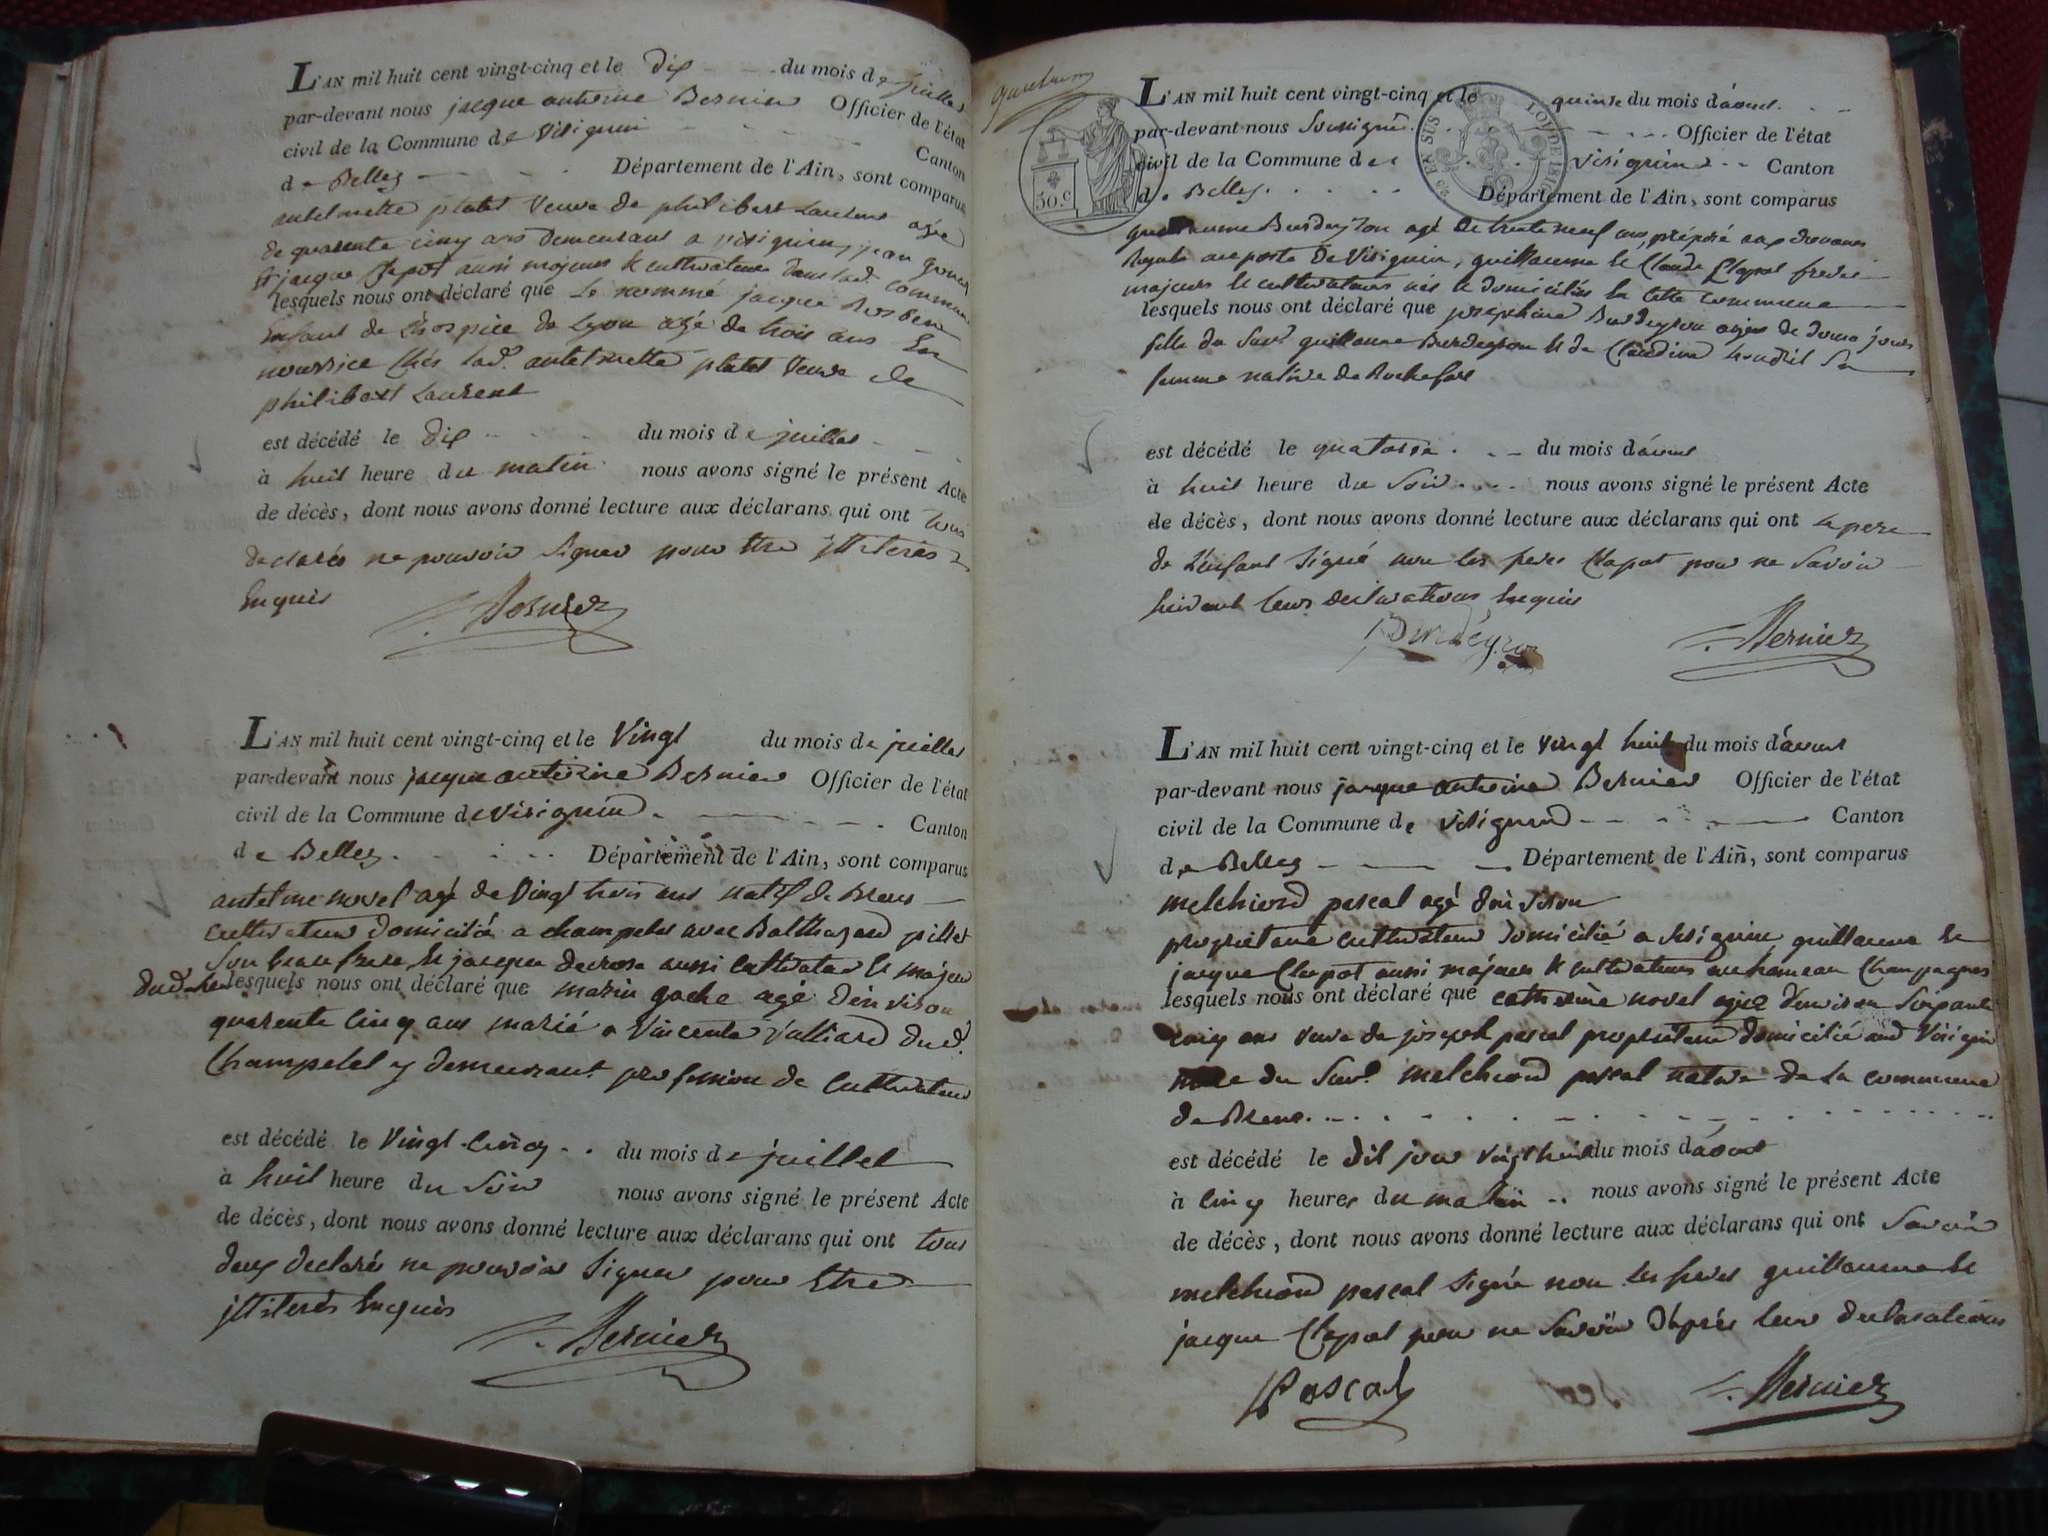 L'AN mil huit cent vingt-cinq et le dix du mois de juillet
par-devant nous jacque antoine Bernier Officier de l'état
civil de la Commune de Virignin Canton
de Belley Département de l'Ain, sont comparus
antelmette platet veuve de philibert Laurent agée
de quarente cinq ans demeurant a virignin, jean
et jacque aussi majeurs & cultivateurs dans lad. commune
lesquels nous ont déclaré que le nommé jacque
Enfant de L'hospice de Lyon agé de trois ans En
nourrice chés lad. antelmette platet veuve de
philibert Laurent
est décédé le dix du mois de juillet
à huit heure du matin nous avons signé le présent Acte
de décès, dont nous avons donné lecture aux déclarans qui ont tous
declarés ne pouvoir signer pour être illiterés
Enquis
Bernier
L'AN mil huit cent vingt-cinq et le vingt du mois de juillet
par-devant nous jacque antoine Bernier Officier de l'état
civil de la Commune de Virignin Canton
de Belley Département de l'Ain, sont comparus
antelme novel agé de vingt trois ans natif de Brens
cultivateur domicilié a champetel avec Balthazard pillet
son beau frere & jacque derose aussi cultivateur & majeur
dud. lieu lesquels nous ont déclaré que marin gache agé d'environ
quarente cinq ans marié a Vincente Valliard dud.
Champetel y demeurant profession de cultivateur
est décédé le vingt-cinq du mois de juillet
à huit heure du soir nous avons signé le présent Acte
de décès, dont nous avons donné lecture aux déclarans qui ont tous
deux declaré ne pouvoir signer pour Etre
illiterés Enquis
Bernier
50.c
L'AN mil huit cent vingt-cinq et le quinze du mois d'aout
par-devant nous soussigné Officier de l'état
civil de la Commune de virignin Canton
de Belley Département de l'Ain, sont comparus
guillaume Burdeyron agé de trente neuf ans, préposé aux douanes
Royale au poste de Virignin, guillaume & Claude Clapot freres
majeurs & cultivateurs nés & domiciliés en cette commune
lesquels nous ont déclaré que josephine Burdeyron agée de douze jours
fille du susd. guillaume Burdeyron & de Claudine sa
femme native de Rochefort
est décédé le quatorze du mois d'aout
à huit heure du soir nous avons signé le présent Acte
de décès, dont nous avons donné lecture aux déclarans qui ont le pere
de l'enfant signé non les freres Clapot pour ne savoir
suivant leurs declarations Enquis
Burdeyron Bernier
L'AN mil huit cent vingt-cinq et le vingt huit du mois d'aout
par-devant nous jacque antoine Bernier Officier de l'état
civil de la Commune de virignin Canton
de Belley Département de l'Ain, sont comparus
melchiord pascal agé d'environ
proprietaire cultivateur domicilié a virignin guillaume &
jacque Clapot aussi majeurs & cultivateurs au hameau Champagnes
lesquels nous ont déclaré que catherine novel agée d'environ soixante
cinq ans veuve de joseph pascal proprietaire domicilié aud Virignin
mere du susd. melchiord pascal native de la commune
de Brens
est décédé le dit jour vingt huit du mois d'aout
à cinq heures du matin nous avons signé le présent Acte
de décès, dont nous avons donné lecture aux déclarans qui ont savoir
melchiord pascal signé non les freres guillaume &
jacque Clapot pour ne savoir d'après leur declarations
Pascal Bernier